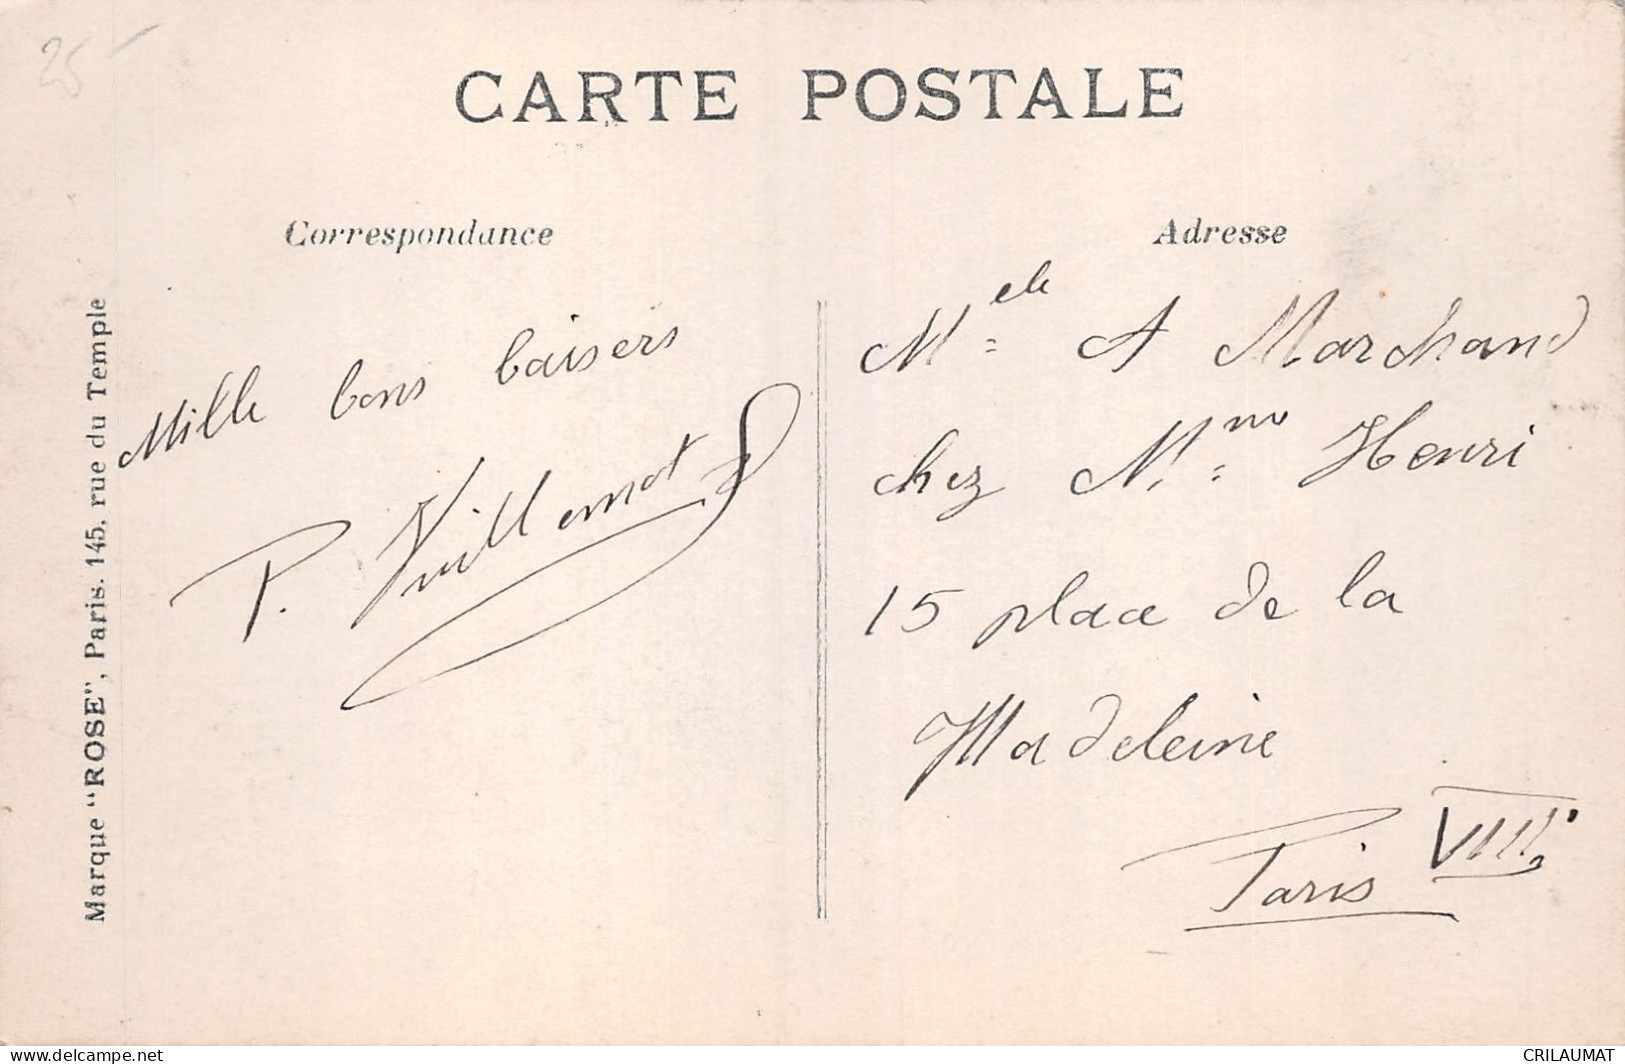 25
CARTE POSTALE
Correspondance
Mille bons baisers
P. Vuillemot
Adresse
Melle A Marchand
chez Mme Henri
15 place de la
Madeleine
Paris VIIIe
Marque "ROSE", Paris. 145, rue du Temple
www.delcampe.net
CRILAUMAT